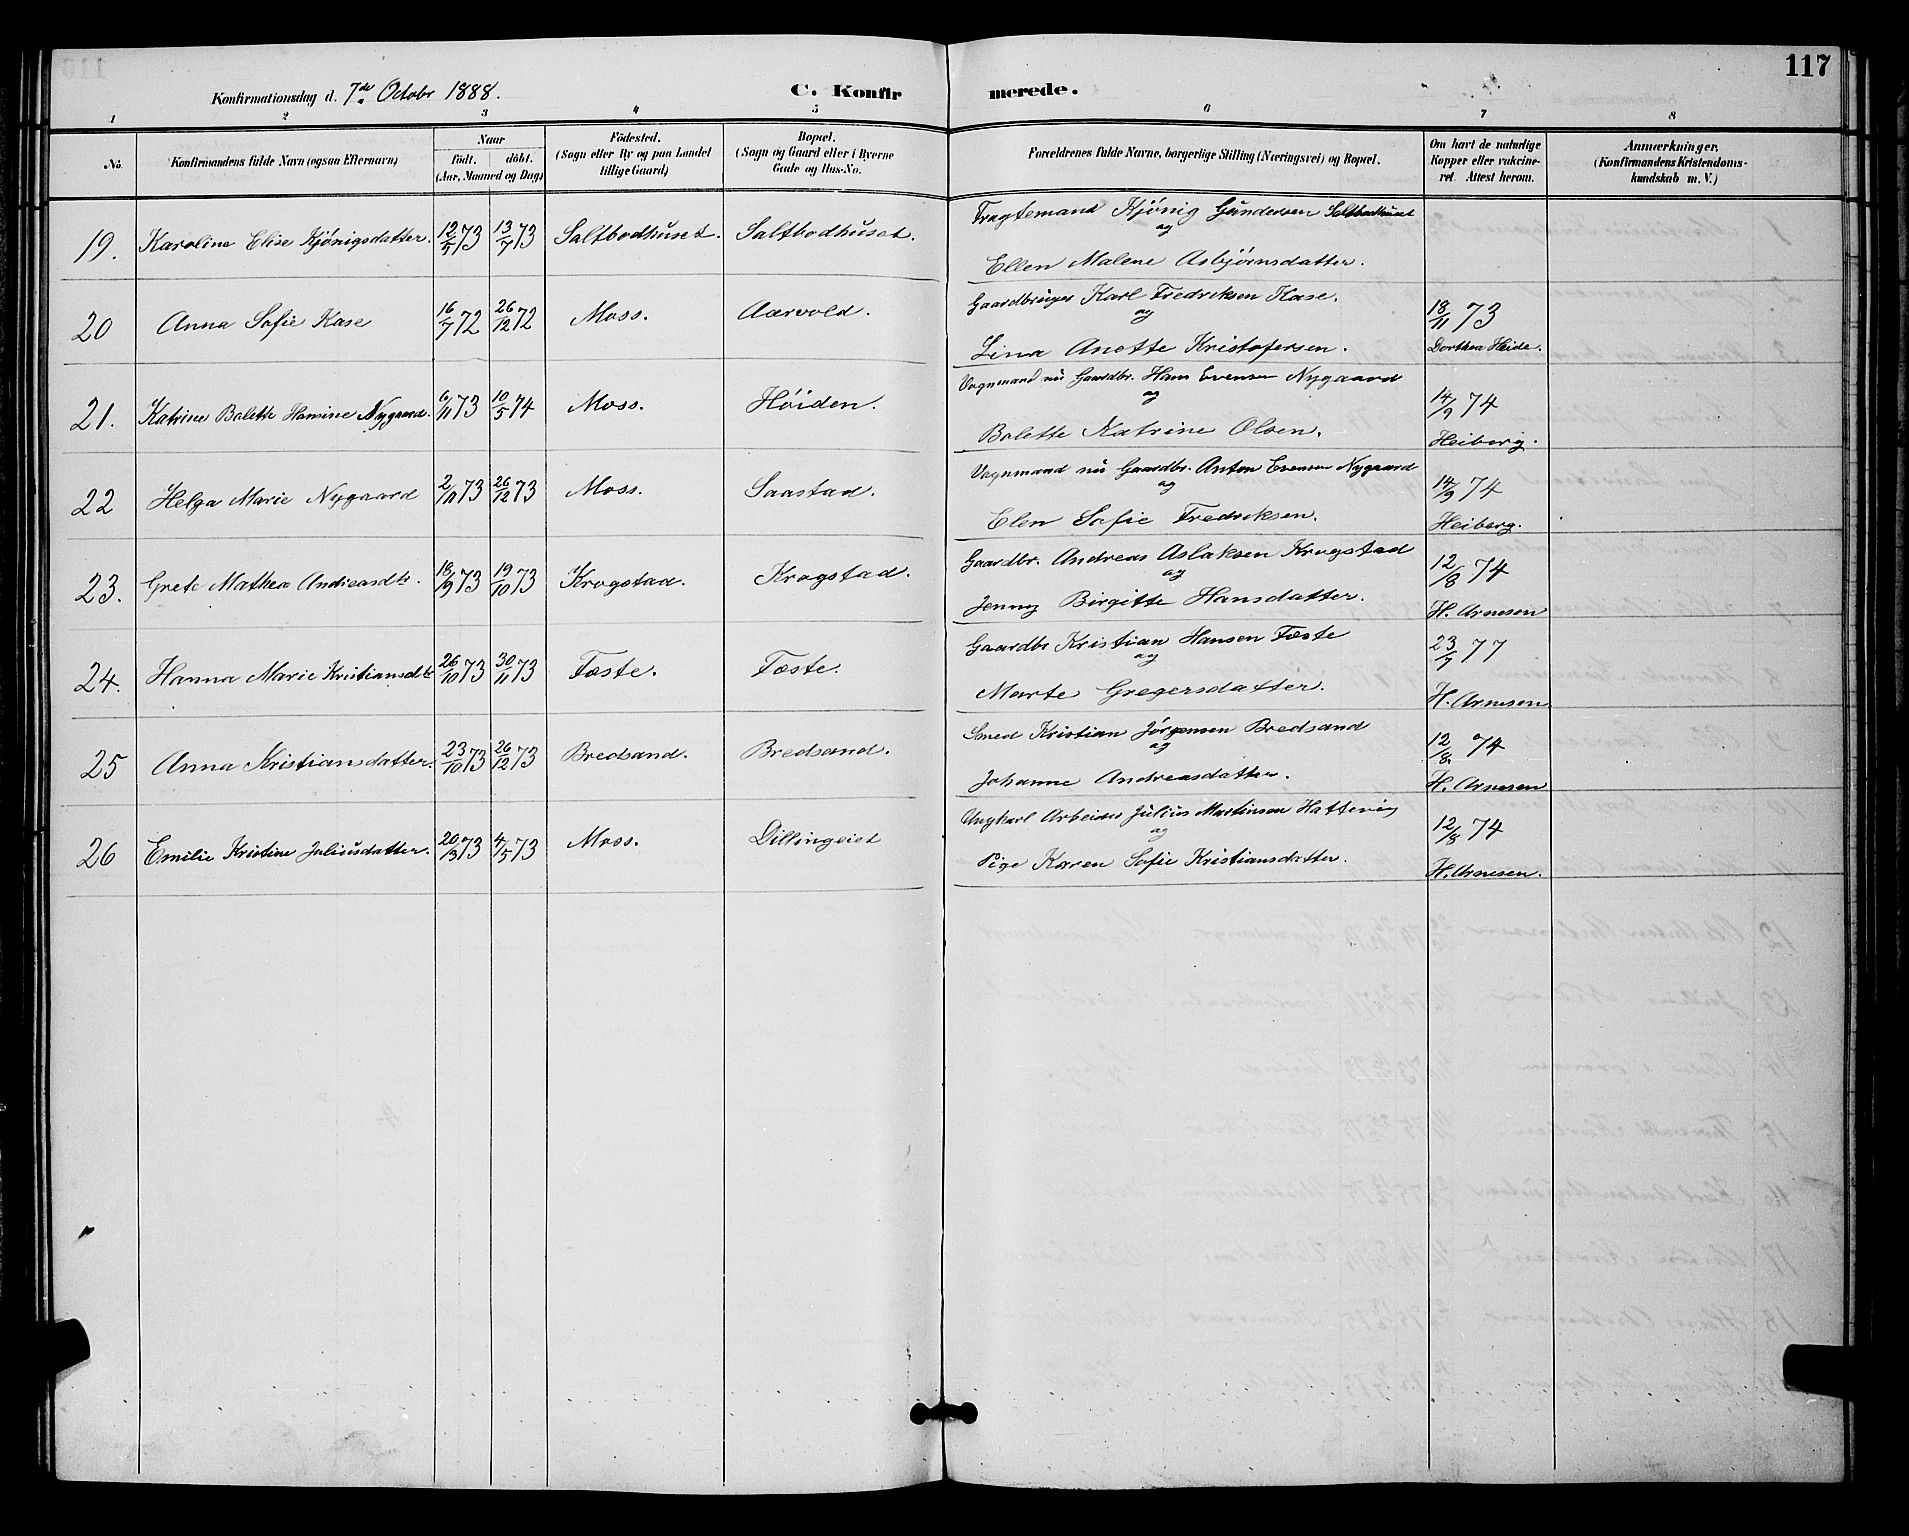 117
Konfirmationsdag d. 7de Octobr 1888. C. Konfirmerede.
1 2 3 4 5 6 7 8
No. Konfirmandens fulde Navn (ogsaa Efternavn) Naar født. døbt. (Aar, Maaned og Dag) Födested. (Sogn eller By og paa Landet tillige Gaard) Bopæl. (Sogn og Gaard eller i Byerne Gade og Hus-No. Forældrenes fulde Navne, borgerlige Stilling (Næringsvei) og Bopæl. Om havt de naturlige Kopper eller vakcineret. Attest herom. Anmærkninger, (Konfirmandens Kristendomskundskab m. V.)
19. Karoline Elise Kjønigsdatter. 12/5 73 13/7 73 Saltbodhuset. Saltbodhuset. Fragtemand Kjønig Gundersen Saltbodhuset
og
Ellen Malene Asbjørnsdatter.
20 Anna Sofie Kase 16/7 72 26/12 72 Moss. Aarvold. Gaardbruger Karl Fredriksen Kase. 18/11 73
og
Lina Anette Kristofersen. Dorthea Heide.
21. Katrine Bolette Hansine Nygaard. 6/11 73 10/5 74 Moss. Høiden. Vognmand nu Gaardbr. Hans Evensen Nygaard 14/9 74
og
Bolette Katrine Olsen. Heiberg.
22 Helga Marie Nygaard 2/11 73 26/12 73 Moss. Saastad. Vognmand nu Gaardbr. Anton Evensen Nygaard 14/9 74
og
Elen Sofie Fredriksen. Heiberg.
23. Grete Mathea Andreasdtr. 18/9 73 19/10 73 Krogstad. Krogstad. Gaardbr. Andreas Aslaksen Krogstad 12/8 74
og
Jenny Birgitte Hansdatter. H. Arnesen
24. Hanna Marie Kristiansdtr 26/10 73 30/11 73 Fæste. Fæste. Gaardbr Kristian Hansen Fæste 23/7 77
og
Marte Gregersdatter. H. Arnesen
25 Anna Kristiansdatter. 23/10 73 26/12 73 Bredsand. Bredsand. Smed Kristian Jørgensen Bredsand 12/8. 74
og
Johanne Andreasdatter. H. Arnesen
26 Emilie Kristine Juliusdatter. 20/3 73 4/5 73 Moss. Dillingeiet Ungkarl Arbeider Julius Martinsen 12/8 74
og
Pige Karen Sofie Kristiansdatter. H. Arnesen.